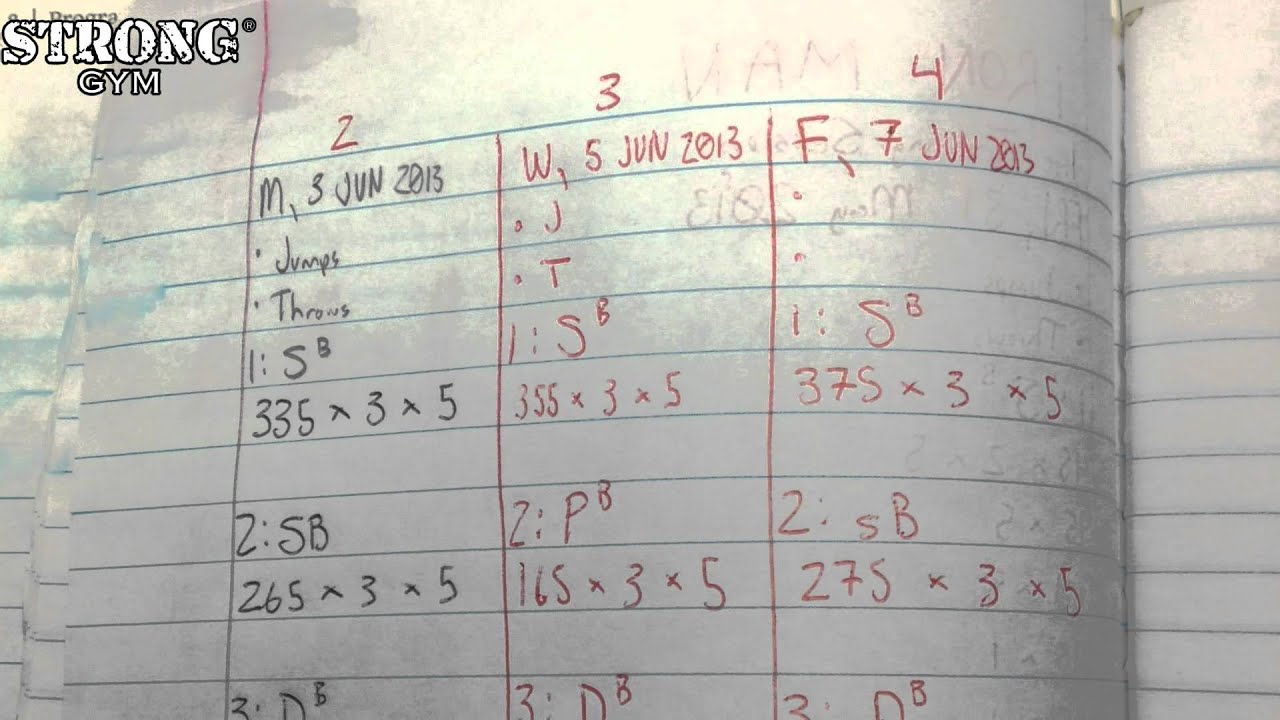 STRONG®
GYM
2
M, 3 JUN 2013
• Jumps
• Throws
1: S^B
335 × 3 × 5
2: SB
265 × 3 × 5
3: D^B
3
W, 5 JUN 2013
• J
• T
1: S^B
355 × 3 × 5
2: P^B
165 × 3 × 5
3: D^B
4
F, 7 JUN 2013
•
•
1: S^B
375 × 3 × 5
2: SB
275 × 3 × 5
3: D^B